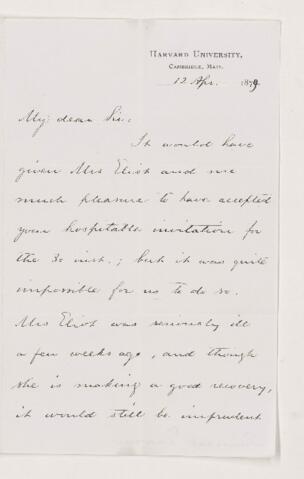 HARVARD UNIVERSITY,
CAMBRIDGE, MASS.
12 Apr. 1879
My dear Sir:
It would have
given Mrs Eliot and me
much pleasure to have accepted
your hospitable invitation for
the 30 inst.; but it was quite
impossible for us to do so.
Mrs Eliot was seriously ill
a few weeks ago, and though
she is making a good recovery,
it would still be imprudent